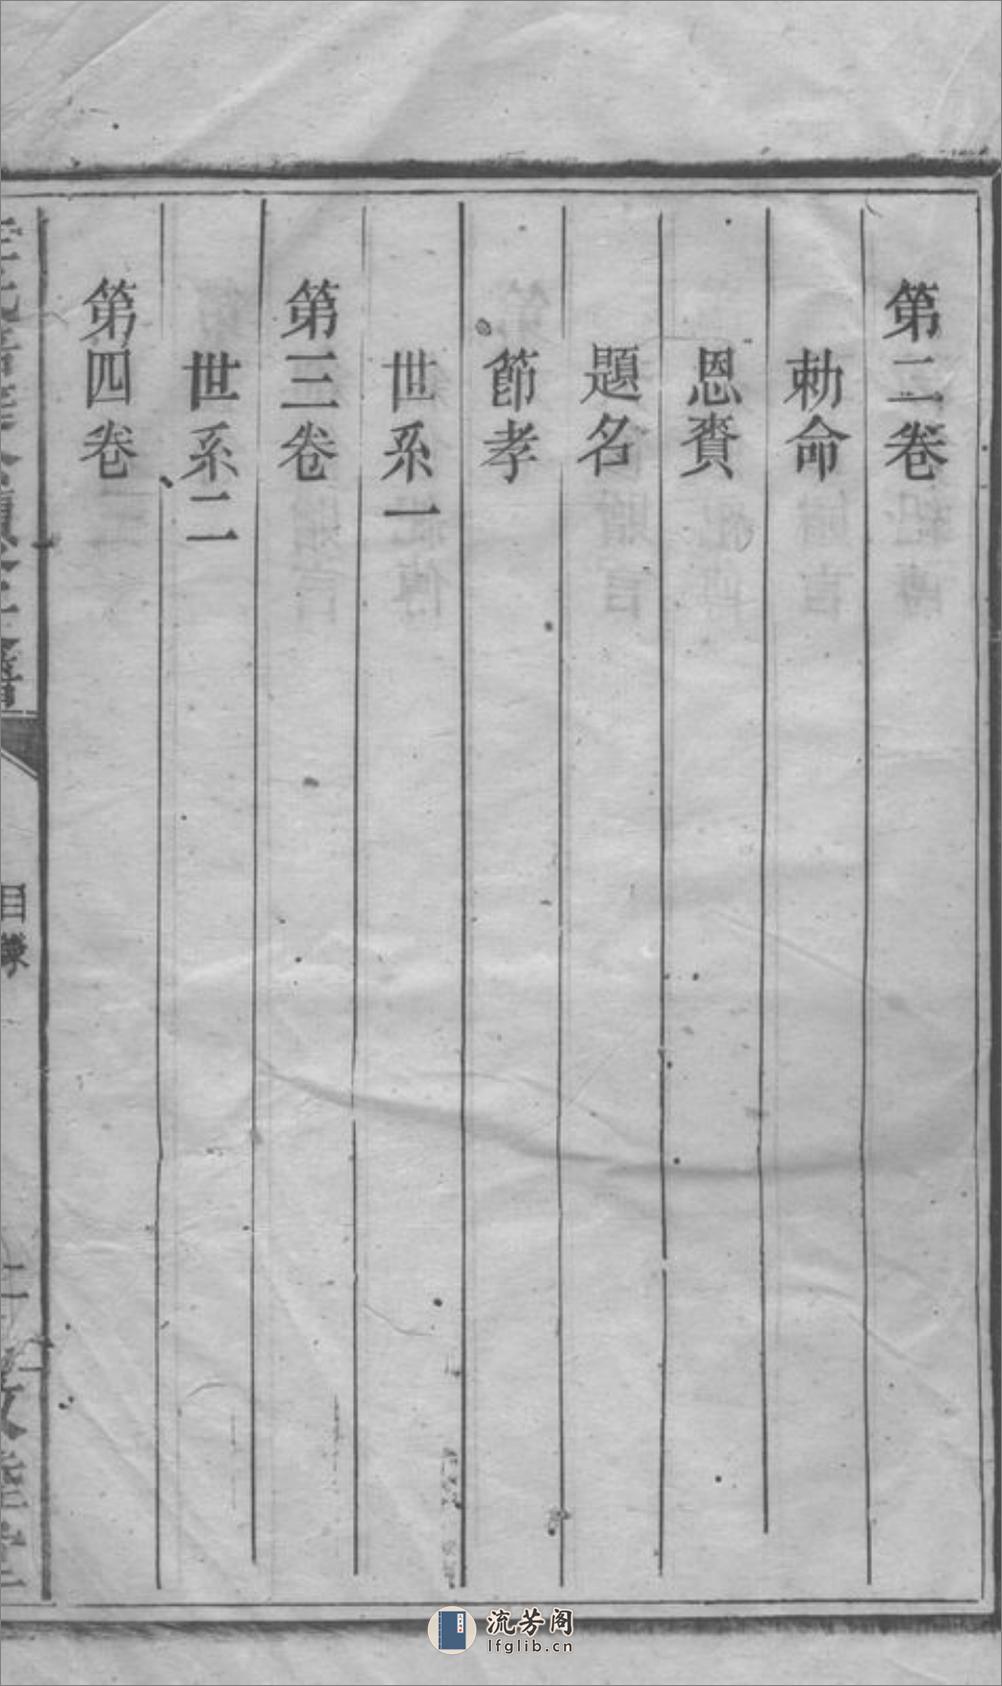 第二卷
勅命
恩賚
題名
節孝
世系一
第三卷
世系二
第四卷
目錄
流芳阁
lfglib.cn